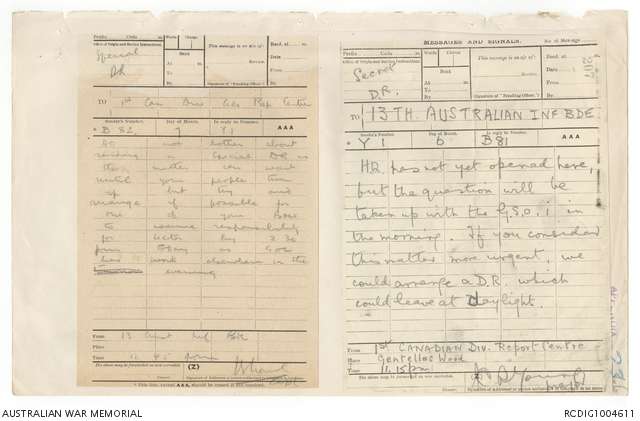 Prefix Code m Words Charge
Office of Origin and Service Instructions.
Special
DR
Sent
At
To
By
This message is on a/c of:
Service.
(Signature of "Franking Officer.")
Recd. at
Date
From
By
TO 1st Can Div
Sender's Number. Day of Month. In reply to Number. AAA
B 82 7 Y1
Do not bother about
sending a Special DR as
the matter can wait
until your people turn
up but try and
arrange if possible for
one of your Bdes
to assume responsibility
for sector by
as GOC
has work elsewhere in the
evening
From 13 Aust Inf Bde
Place
Time 11.45 pm
The above may be forwarded as now corrected. (Z)
Capt
MESSAGES AND SIGNALS. No. of Message
Prefix Code m Words Charge
Office of Origin and Service Instructions.
Secret
D.R.
Sent
At
To
By
This message is on a/c of:
Service.
(Signature of "Franking Officer.")
Recd. at
Date
From
By
TO 13TH. AUSTRALIAN INF BDE
Sender's Number. Day of Month. In reply to Number. AAA
Y 1 6 B 81
HQ has not yet opened here,
but the question will be
taken up with the G.S.O. i in
the morning. If you consider
this matter more urgent, we
could arrange a D.R. which
could leave at daylight.
From 1st CANADIAN Div. Report Centre
Place Gentelles Wood
Time 11.15pm
The above may be forwarded as now corrected. (Z)
Major
AUSTRALIAN WAR MEMORIAL
RCDIG1004611